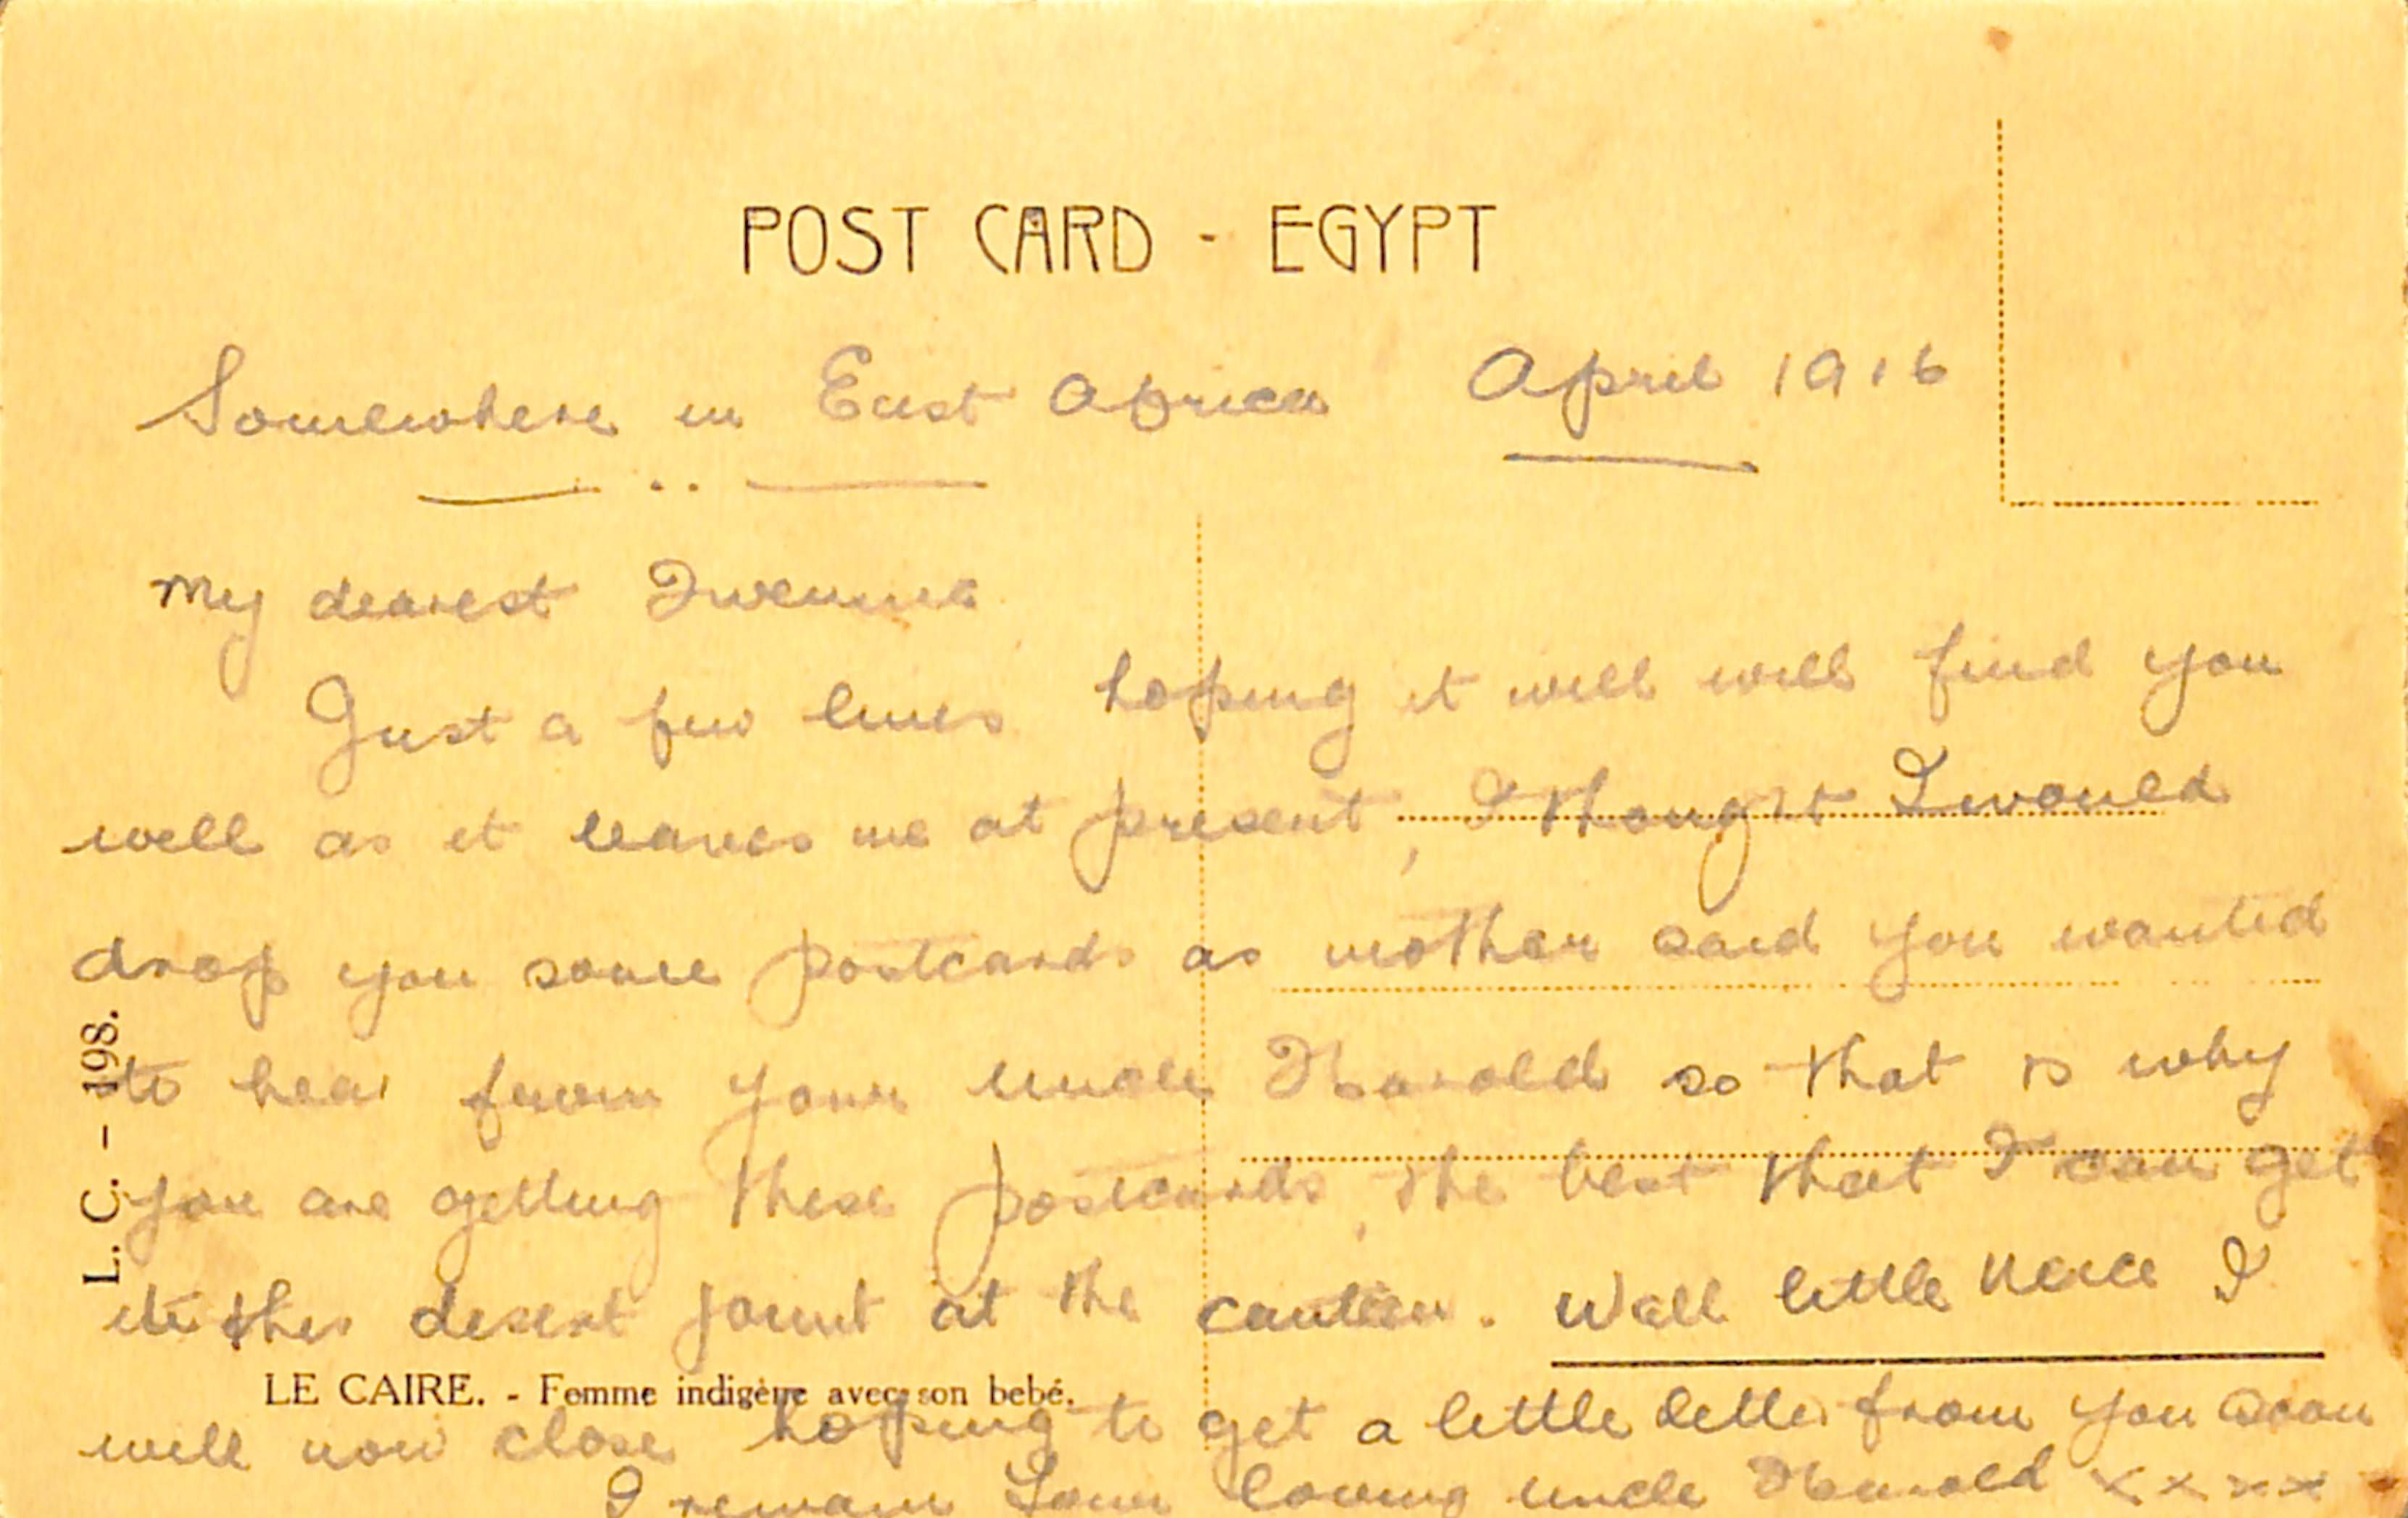 POST CARD - EGYPT
Somewhere in East Africa April 1916
My dearest
Just a few lines hoping it will will find you
well as it leaves me at present, I thought I would
drop you some postcards as mother said you wanted
to hear from your uncle Harold so that is why
you are getting these postcards, the best that I can get
in this desert joint at the canteen. Well little neice I
will now close hoping to get a little letter from you soon
I remain Your loving uncle Harold x x x x
L. C. - 198.
LE CAIRE. - Femme indigène avec son bebé.